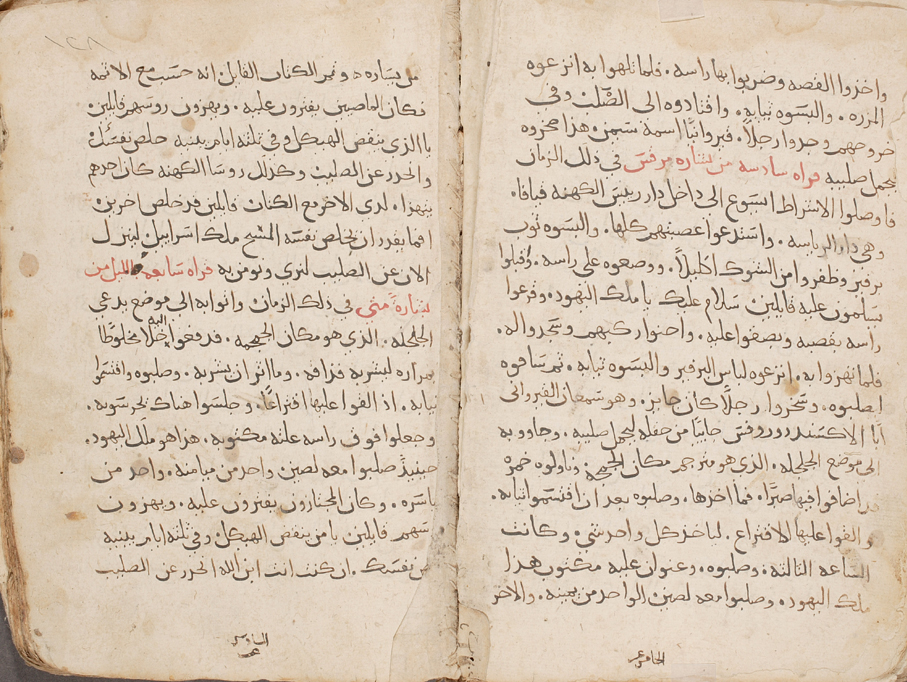 واخذوا القصبه وضربوا بها راسه. فلما تلهوا به انزعوه
المزره. والبسوه ثيابه. واقتادوه الى الصلب وفي
خروجهم وجدوا رجلاً. قيروانيًا اسمه سيمن. هذا سخروه
يحمل صليبه قراه سادسه من بشاره مرقس في ذلك الزمان
فاوصلوا الاشراط ايسوع الى داخل دار رييس الكهنه قيافا.
وهي دار الرياسه. واستدعوا عصبتهم كلها. والبسوه ثوب
برفير وظفروا من الشوك اكليلاً. ووضعوه على راسه. واقبلوا
يسلمون عليه قايلين سلام عليك يا ملك اليهود. وقرعوا
راسه بقصبه وبصقوا عليه. واحنوا ركبهم وسجدوا له.
فلما تهزوا به. انزعوه لباس البرفير والبسوه ثيابه. ثم ساقوه
ليصلبوه. وسخروا رجلاً كان جايز. وهو سمعان القيرواني
ابا الاكسندر وروفس جاييًا من حقله ليحمل صليبه. وجاوو به
الى موضع الجلجله. الذي هو مترجم مكان الجمجمه وناولوه خمره
قد اضافوا فيها صبرًا. فما اخذها. وصلبوه بعد ان اقتسموا ثيابه.
والقوا عليها الاقتراع. لياخذ كل واحد شي. وكانت
الساعه الثالثه. وصلبوه. وعنوان عليه مكتوب هذا
ملك اليهود. وصلبوا معه لصين الواحد من يمينه. والاخر
الخامس عشر
١٢٨
من يساره ٥ وتم الكتاب القايل انه حسب مع الاثمه
فكان الماضيين يفترون عليه. ويهزون روسهم قايلين.
يا الذي ينقض الهيكل وفي ثلثه ايام يبنيه خلص نفسك
وانحدر عن الصليب وكذلك روسا الكهنه كان احدهم
يتهزا. لدى الاخر مع الكتاب قايلين قد خلص اخرين.
افما يقدر ان يخلص نفسه المسيح ملك اسراييل لينزل
الان عن الصليب لنرى ونومن به قراه سابعه الليل من
بشارة متى في ذلك الزمان واتوا به الى موضع يدعى
الجلجله. الذي هو مكان الجمجمه. فدفعوا اليه خلاً مخلوطًا
بمراره ليشربه فذاقه. وما اثر ان يشربه. وصلبوه واقتسموا
ثيابه. اذ القوا عليها اقتراعًا. وجلسوا هناك يحرسونه.
وجعلوا فوق راسه علته مكتوبه. هذا هو ملك اليهود.
حينيذٍ صلبوا معه لصين واحد من ميامنه. وواحد من
ياسره. وكان المجتازون يفترون عليه. ويهزون
روسهم قايلين يا من ينقض الهيكل وفي ثلثه ايام يبنيه
خلص نفسك. ان كنت انت ابن الله انحدر عن الصليب
السادس عشر